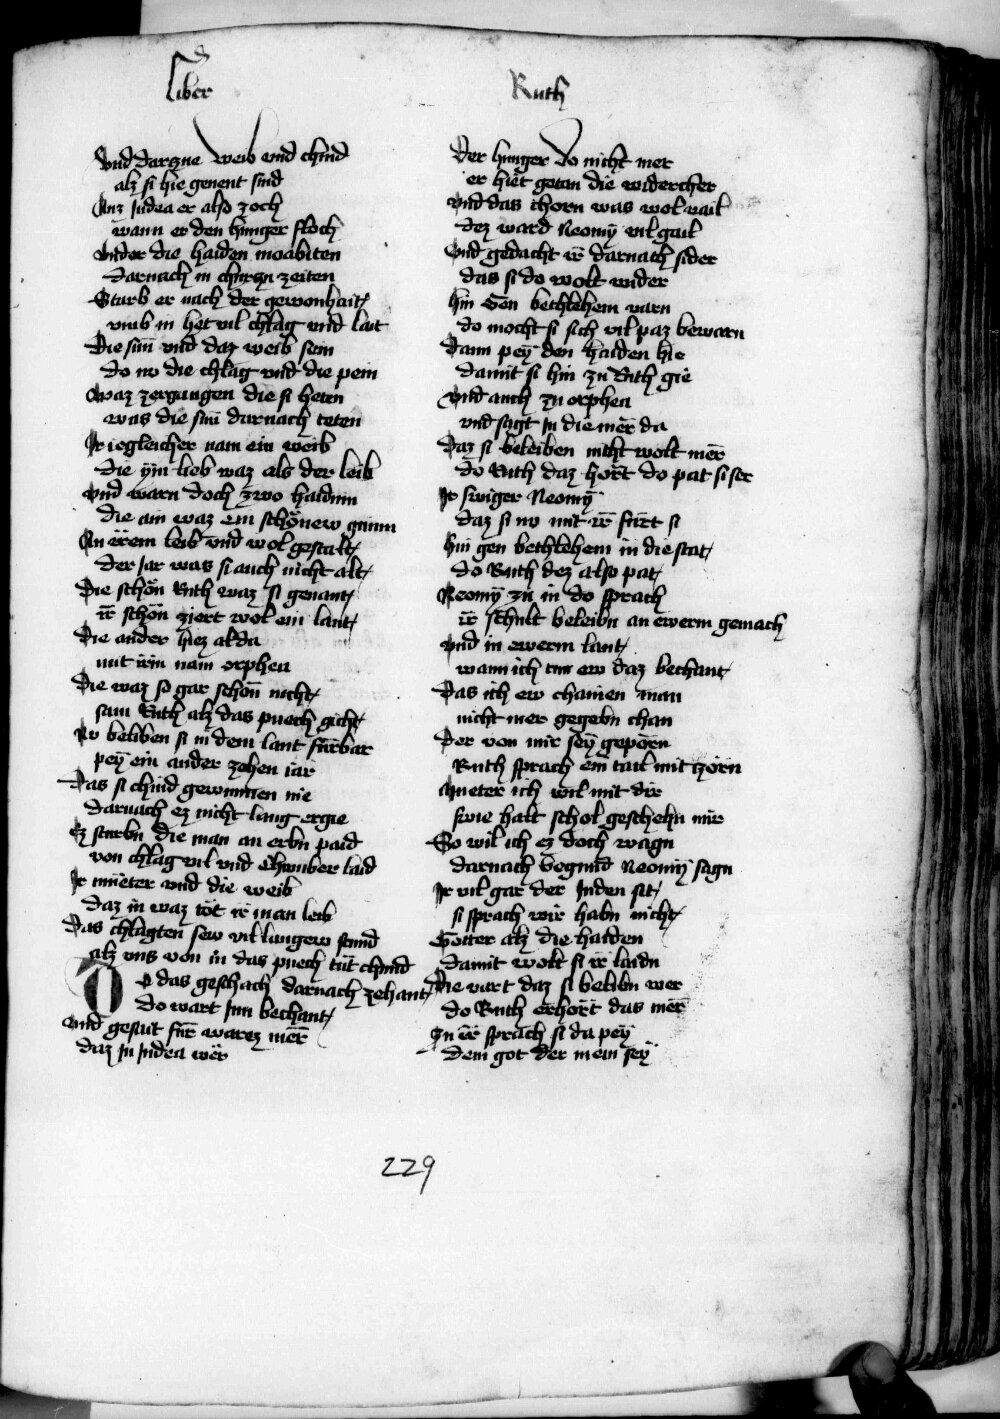 Liber
Ruth
Vnd darzue weib vnd chind
alz si hie genent sind
Auz Judea er also zoch
wann er den hunger floch
Vnder die haiden moabiten
darnach in churzn zeiten
Starb er nach der gewonhait
vmb in het vil chlag vnd lait
Die sün vnd daz weib sein
do nv die chlag vnd die pein
Waz zergangen die si heten
was die sün darnach teten
Ir iegleicher nam ein weib
die ym lieb waz als der leib
Vnd warn doch zwo haidnin
die ain waz ein schönew
An irem leib vnd wol gestalt
der Jar was si auch nicht alt
Die schön Ruth waz si genant
ir schön ziert wol ein lant
Die ander hiez alda
mit irm nam orphea
Die waz so gar schön nicht
sam Ruth alz das puech gicht
Nv beliben si in dem lant fürbar
pey ein ander zehen iar
Das si chind gewunnen nie
darnach ez nicht lang ergie
Ez sturbn die man an erbn paid
von chlag vil vnd chumber laid
Ir müeter vnd die weib
daz in waz töt ir man leib
Das chlagten sew vil langew stund
alz vns von in das puech tüt chund
Do das geschach darnach zehant
do wart Jnn bechant
Vnd gesait für warez mer
daz in Judea wer
Der hunger do nicht mer
er hiet getan die widercher
Vnd das chorn was wol vail
dez ward Neomy vil gail
Vnd gedacht ir darnach sider
das si do wolt wider
Hin gen bethlehem varn
do mocht si sich vil paz bewarn
Dann pey den haiden hie
damit si hin zu Ruth gie
Vnd auch zu orphea
vnd sagt in die mer da
Daz si beleiben nicht wolt mer
do Ruth daz hort do pat si ser
Ir swiger Neomy
daz si nv mit ir fürt si
Hin gen bethlehem in die stat
do Ruth dez also pat
Neomy zu in do sprach
ir schult beleibn an ewerm gemach
Vnd in ewerm lant
wann ich tun ew daz bechant
Das ich ew chainen man
nicht mer gegebn chan
Der von mir sey geporn
Ruth sprach ein tail mit zorn
Mueter ich wil mit dir
swie halt schol geschehn mir
So wil ich ez doch wagn
darnach begund Neomy sagn
Ir vil gar der Juden sit
si sprach wir habn nicht
Götter alz die haiden
damit wolt si ir laidn
Die vart daz si belibn wer
do Ruth erhort das mer
Zu ir sprach si da pey
dein got der mein sey
229